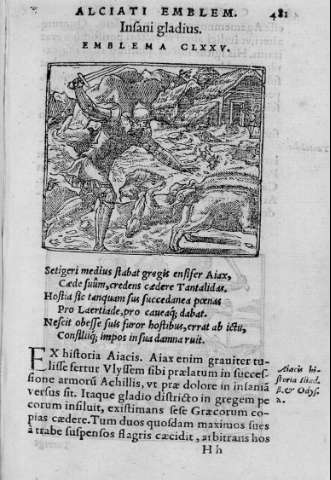 ALCIATI EMBLEM. 481
Insani gladius.
EMBLEMA CLXXV.
Setigeri medius stabat gregis ensifer Aiax,
Cæde suûm, credens cædere Tantalidas.
Hostia sic tanquam sus succedanea pœnas
Pro Laertiade, pro caueaq; dabat.
Nescit obesse suis furor hostibus, errat ab ictu,
Consiliiq; impos in sua damna ruit.
EX historia Aiacis. Aiax enim grauiter tu-
lisse fertur Vlyssem sibi prælatum in succes-
sione armorũ Achillis, vt præ dolore in insaniã
versus sit. Itaque gladio districto in gregem pe
corum insiluit, existimans sese Græcorum co-
pias cædere. Tum duos quosdam maximos sues
à trabe suspensos flagris cæcidit, arbitrans hos
Aiacis hi-
storia Iliad.
& Odys.
H h